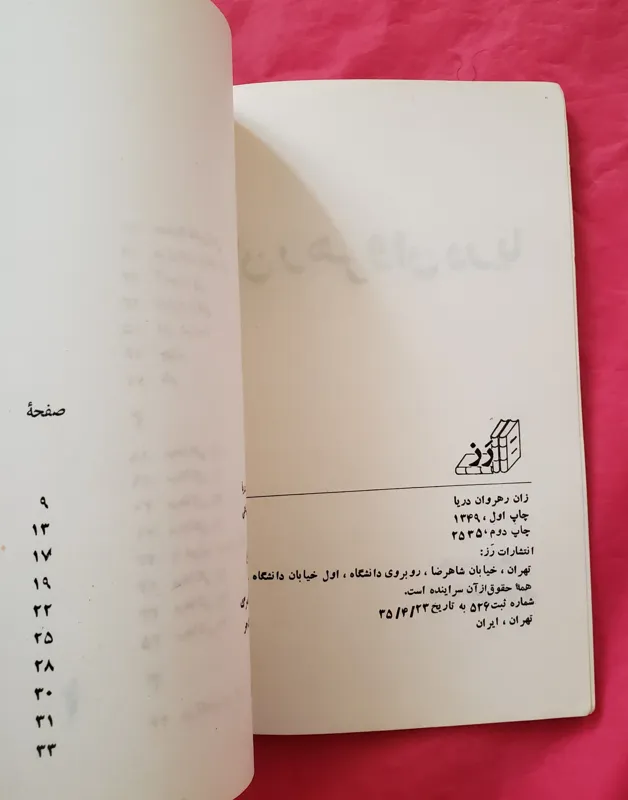 رَز
زان رهروان دریا
چاپ اول، ۱۳۴۹
چاپ دوم، ۲۵۳۵
انتشارات رَز:
تهران، خیابان شاهرضا، روبروی دانشگاه، اول خیابان دانشگاه
همهٔ حقوق از آن سراینده است.
شماره ثبت ۵۲۶ به تاریخ ۳۵/۴/۲۳
تهران، ایران
صفحهٔ
۹
۱۳
۱۷
۱۹
۲۲
۲۵
۲۸
۳۰
۳۱
۳۳